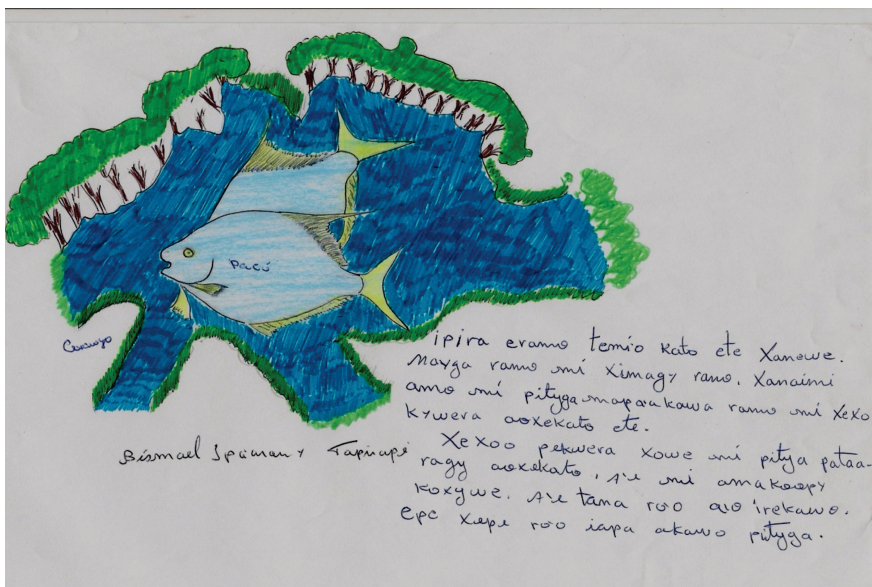 Pacú
ipira eramo temio kato ete Xanewe.
Mayga ramo mi Ximagy ramo. Xanaimi
amo mi pityga maparakawa ramo mi Xexo
kywera aoxekato ete.
Xexoo pekwera xowe mi pitya pataa-
ragy aoxekato, A'e mi
koxywe. A'e tana roo aio irekawo.
epe xepe roo iapa akawo pityga.
Tapirapé